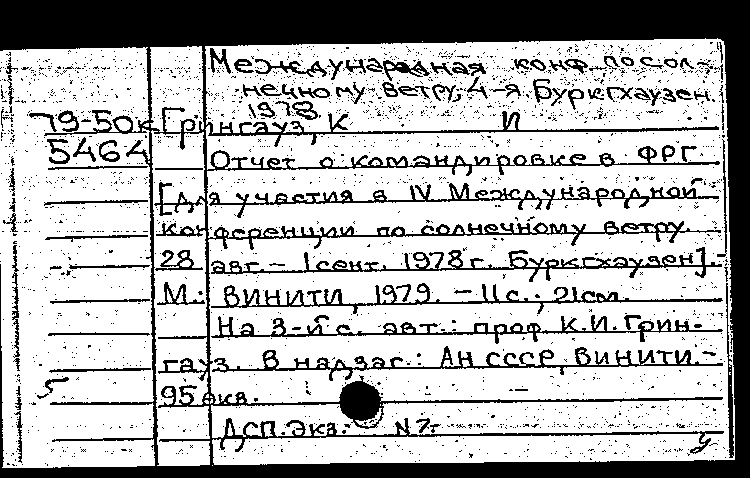 Международная конф. по сол-
нечному ветру, 4-я. Бургхаузен.
1978
79-50к [Грингауз, К И
5464 Отчет о командировке в ФРГ
[для участия в IV Международной
конференции по солнечному ветру.
28 авг. - 1 сент. 1978 г. Бургхаузен]. -
М.: ВИНИТИ, 1979. - 11 с.; 21 см.
На 3-й с. авт.: проф. К.И. Грин-
гауз. В надзаг.: АН СССР, ВИНИТИ. -
5 95 экз.
ДСП. Экз. N 7.
У